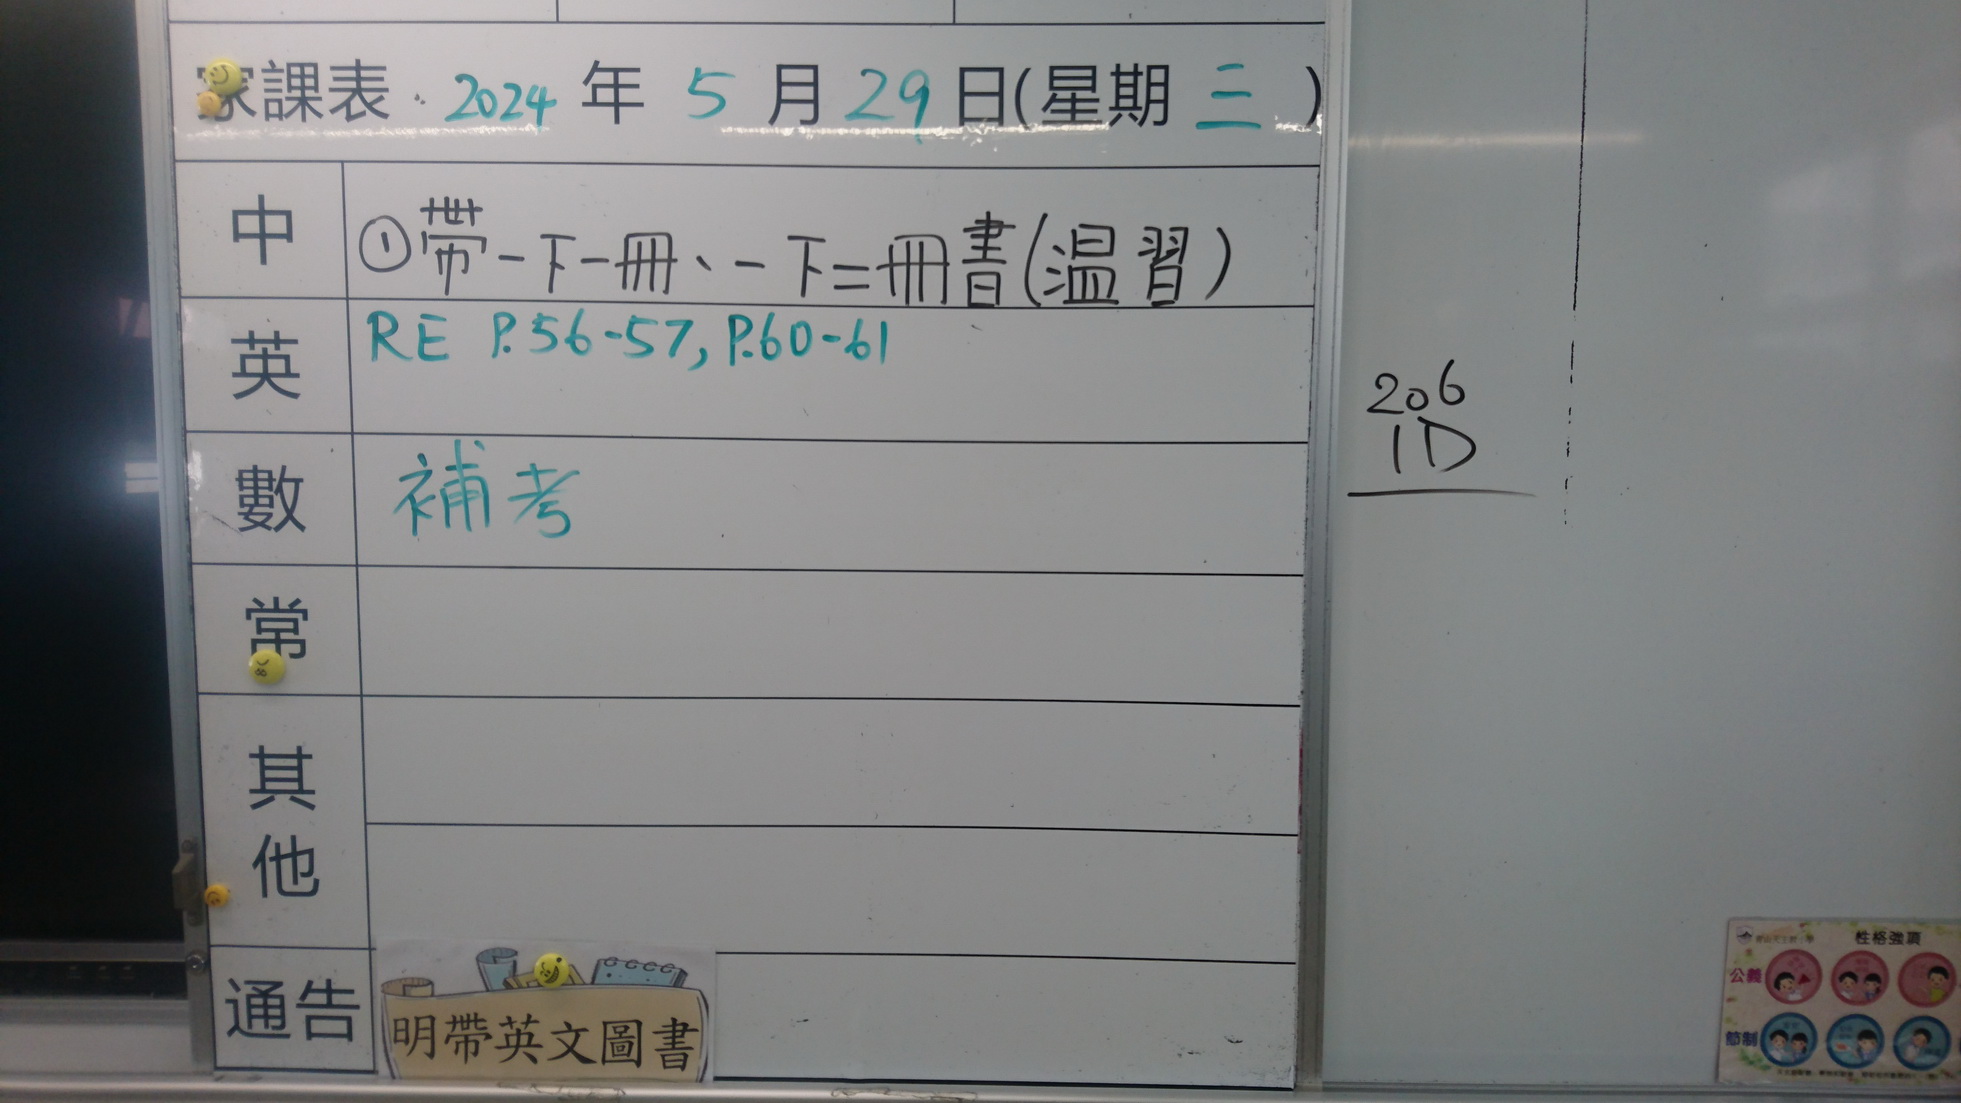 家課表 2024 年 5 月 29 日(星期 三 )
中
①帶一下一冊、一下二冊書(温習)
英
RE P.56-57, P.60-61
數
補考
常
其他
通告
明帶英文圖書
206
1D
性格強項
公義
節制